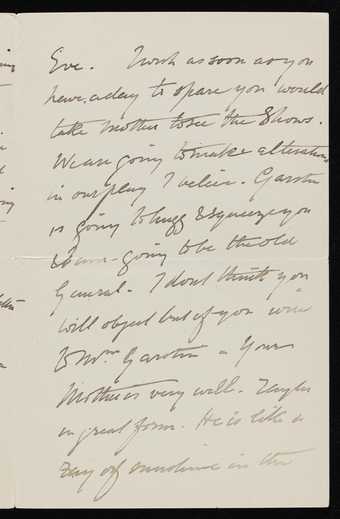 Eve. I wish as soon as you
have a day to spare you would
take Mother to see the Shows.
We are going to make alterations
in our play I believe. Garstin
is going to hugg & squeeze you
& I am going to be the old
General. I dont think you
will object but if you
to Mrs Garstin Your
Mother is very well.
in great form. He is like a
ray of sunshine in the